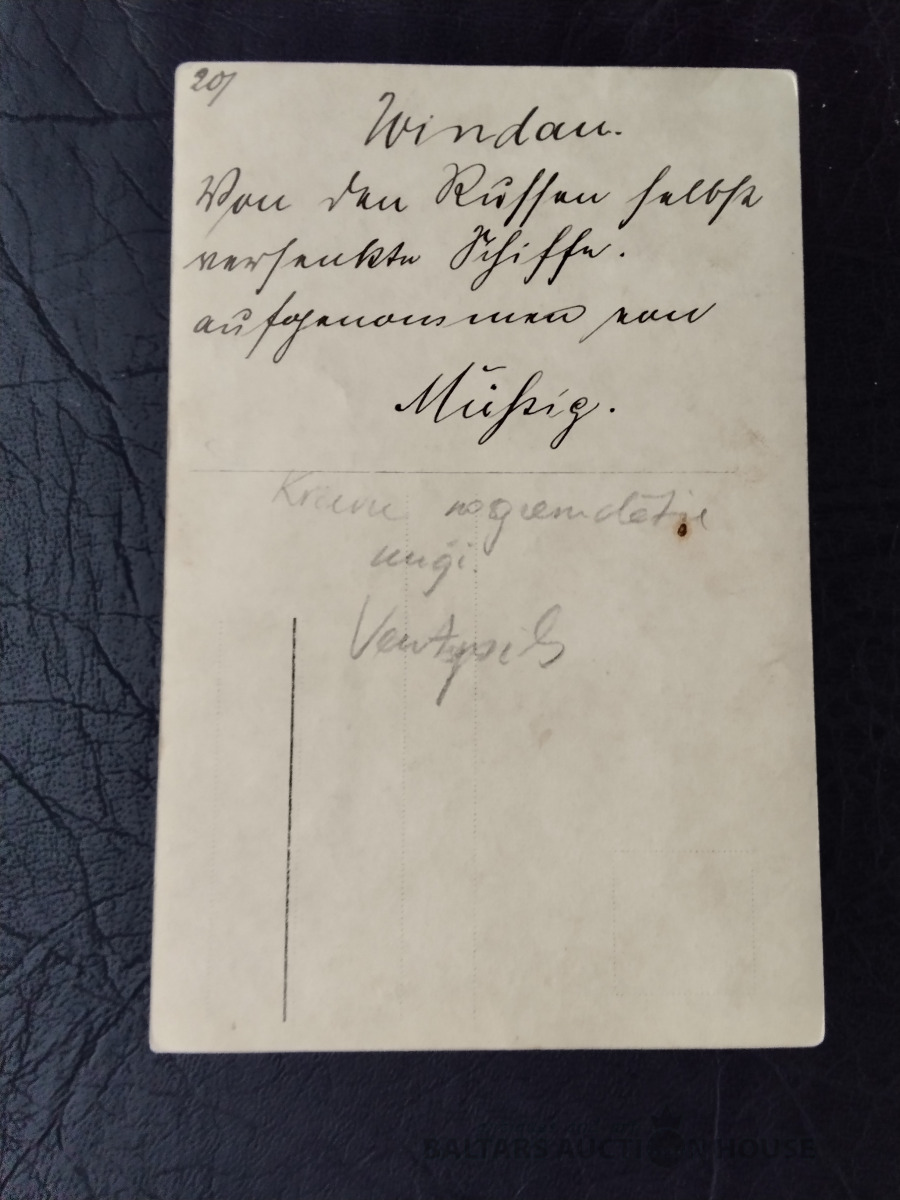 20/
Windau.
Von den Russen selbst
versenkte Schiffe.
aufgenommen von
Müßig.
Krievu nogremdētie
kuģi.
Ventspils
BALTARS AUCTION HOUSE